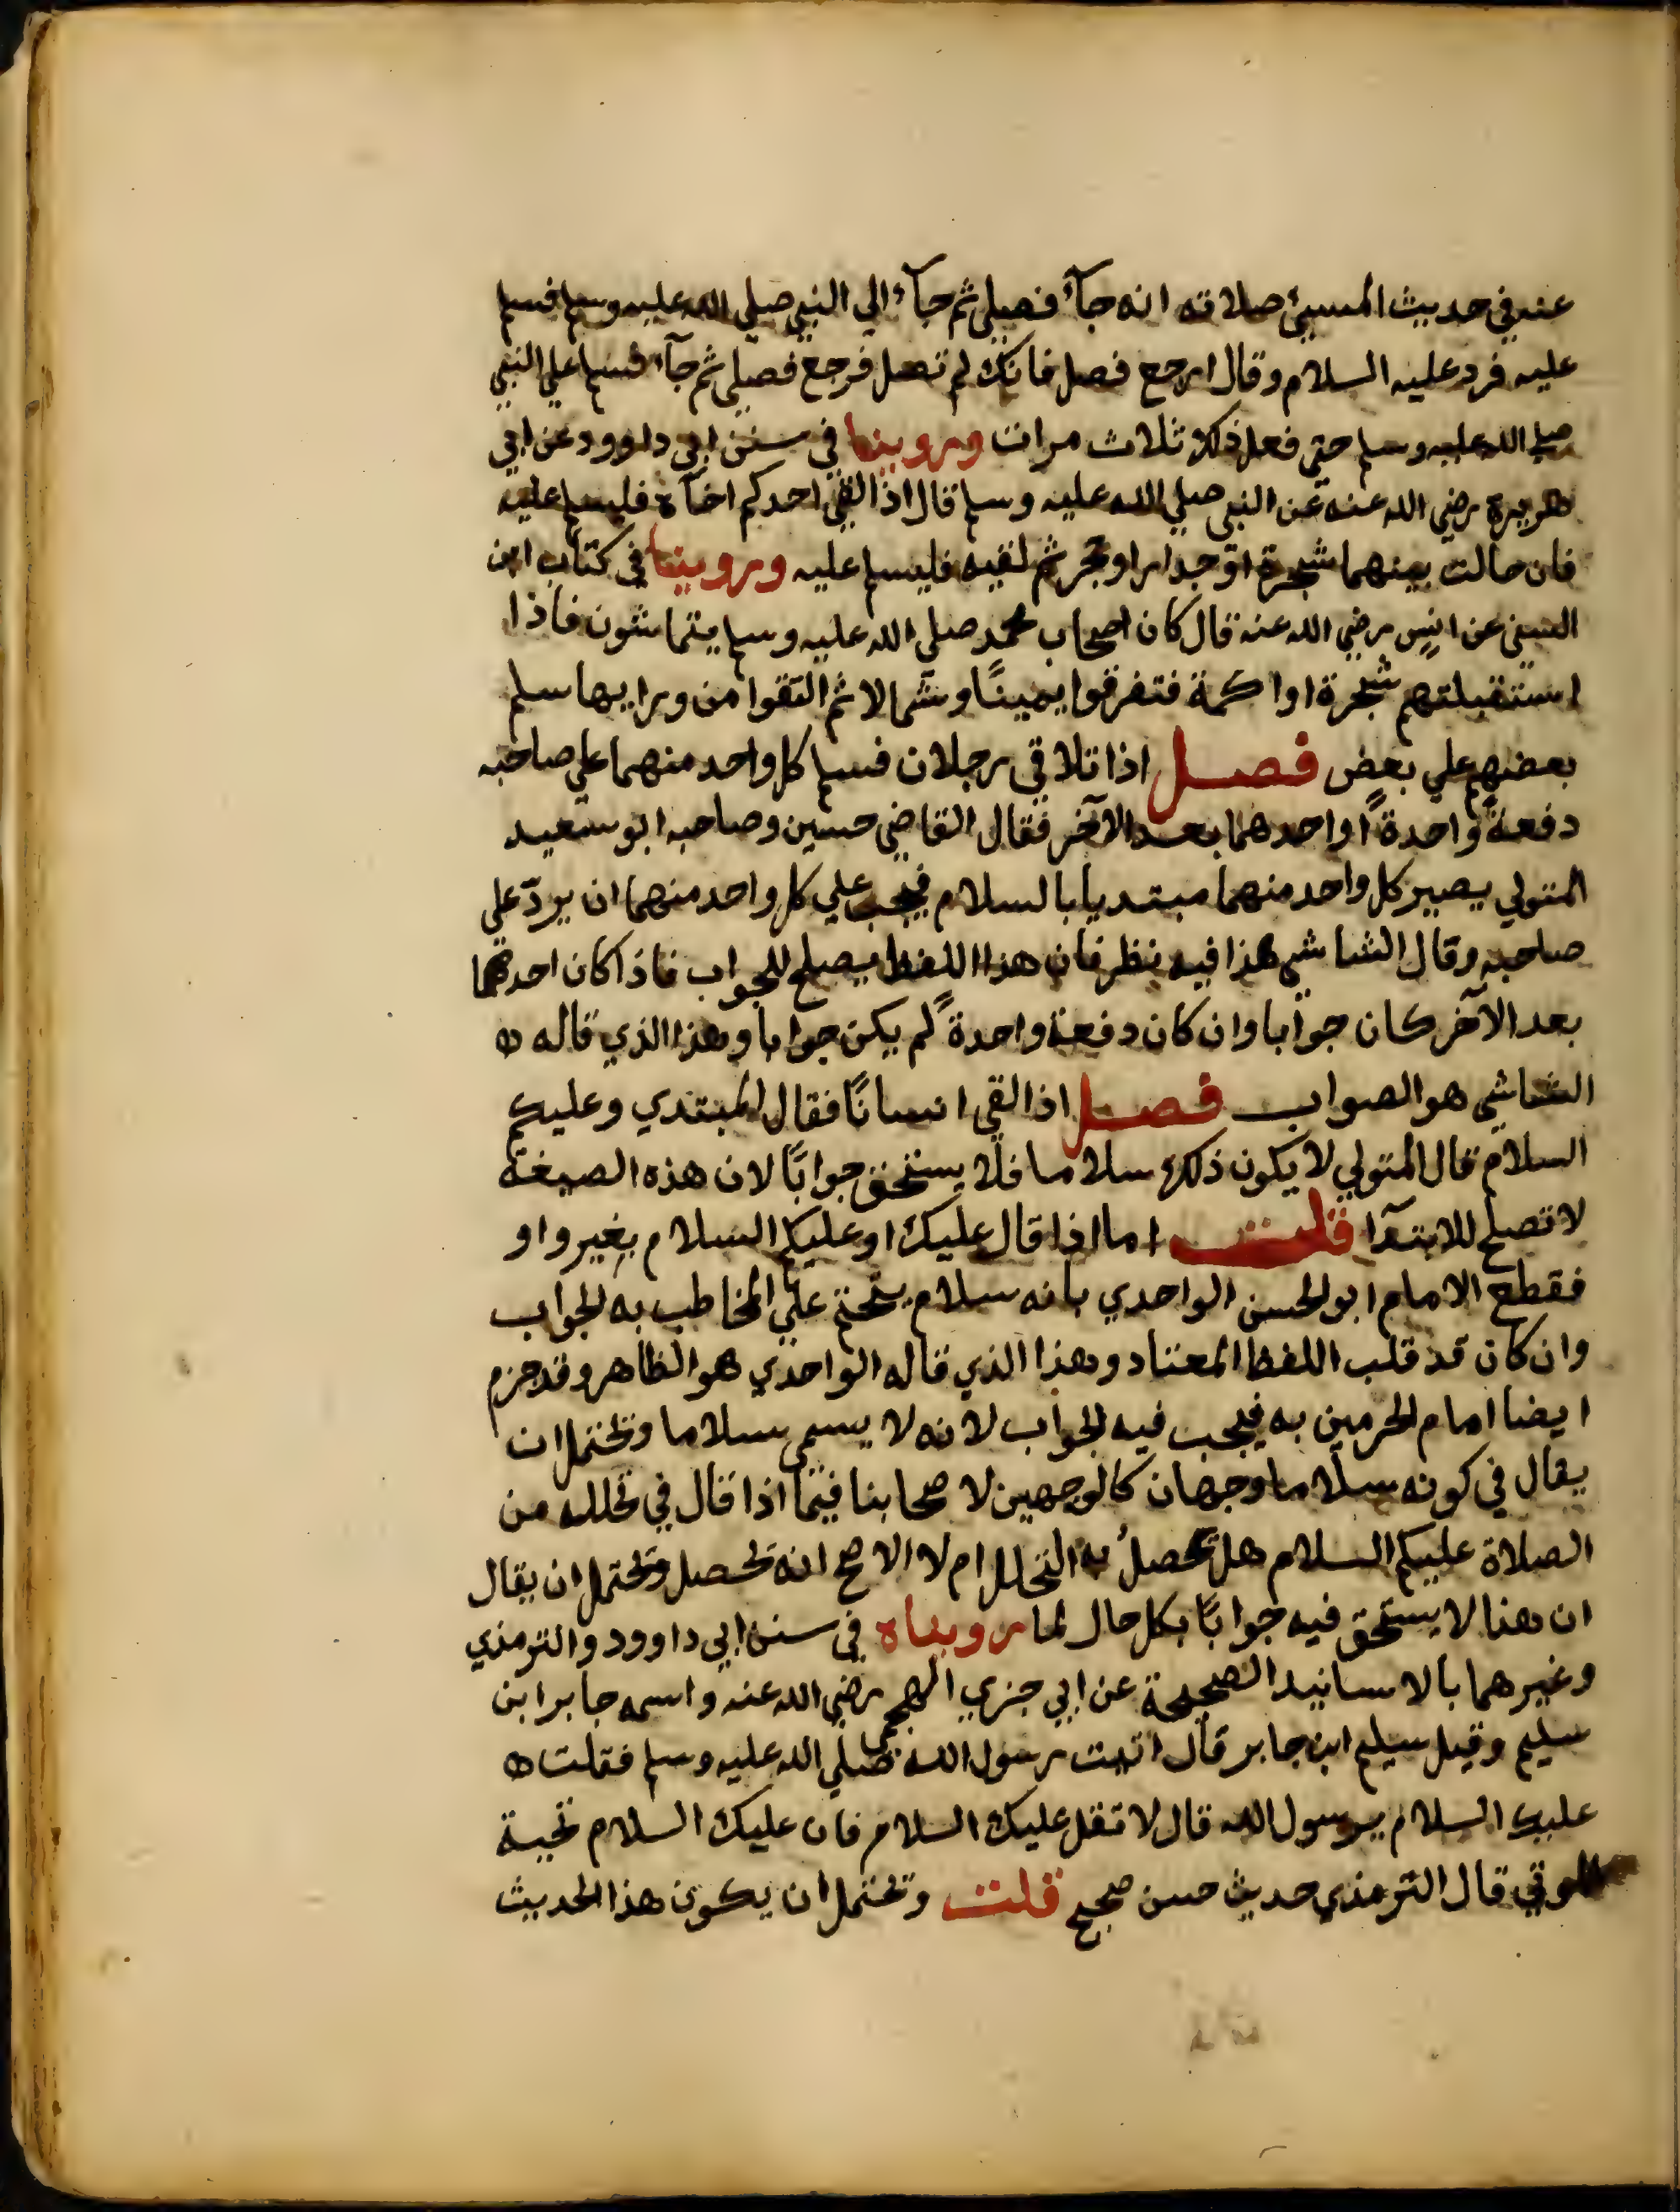 عنه في حديث المسيئ صلاته انه جآء فصلي ثم جآء الي النبي صلي الله عليه وسلم فسلم
عليه فرد عليه السلام وقال ارجع فصل فانك لم تصل فرجع فصلي ثم جآء فسلم علي النبي
صلي الله عليه وسلم حتي فعل ذلك ثلاث مرات وروينا في سنن ابي داوود عن ابي
هريرة رضي الله عنه عن النبي صلي الله عليه وسلم قال اذا لقي احدكم اخاه فليسلم عليه
فان حالت بينهما شجرة او جدار او حجر ثم لقيه فليسلم عليه وروينا في كتاب ابن
السني عن انس رضي الله عنه قال كان اصحاب محمد صلي الله عليه وسلم يتماشون فاذا
استقبلتهم شجرة او اكمة فتفرقوا يمينًا وشمالا ثم التقوا من ورايها سلم
بعضهم علي بعض فصل اذا تلاقي رجلان فسلم كل واحد منهما علي صاحبه
دفعة واحدةً او احدهما بعد الآخر فقال القاضي حسين وصاحبه ابو سعيد
المتولي يصير كل واحد منهما مبتديا بالسلام فيجب علي كل واحد منهما ان يردّ علي
صاحبه وقال الشاشي هذا فيه نظر فان هذا اللفظ يصلح للجواب فاذا كان احدهما
بعد الآخر كان جوابا وان كان دفعة واحدةً لم يكن جوابا وهذا الذي قاله
الشاشي هو الصواب فصل اذا لقي انسانًا فقال المبتدي وعليكم
السلام قال المتولي لا يكون ذلك سلاما فلا يستحق جوابًا لان هذه الصيغة
لا تصلح للابتدآ قلت اما اذا قال عليك او عليكم السلام بغير واو
فقطع الامام ابو الحسن الواحدي بانه سلام يتحتم علي المخاطب به الجواب
وان كان قد قلب اللفظ المعتاد وهذا الذي قاله الواحدي هو الظاهر وقد جزم
ايضا امام الحرمين به فيجب فيه الجواب لانه لا يسمي سلاما ويحتمل ان
يقال في كونه سلاما وجهان كالوجهين لاصحابنا فيما اذا قال في تحلله من
الصلاة عليكم السلام هل يحصلُ به التحلل ام لا الاصح انه يحصل ويحتمل ان يقال
ان هذا لا يستحق فيه جوابًا بكل حال لما رويناه في سنن ابي داوود والترمذي
وغيرهما بالاسانيد الصحيحة عن ابي جزي الهجيمي رضي الله عنه واسمه جابر ابن
سليم وقيل سليم ابن جابر قال اتيت رسول الله صلي الله عليه وسلم فقلت
عليك السلام يرسول الله قال لا تقل عليك السلام فان عليك السلام تحية
الموتي قال الترمذي حديث حسن صحيح قلت ويحتمل ان يكون هذا الحديث